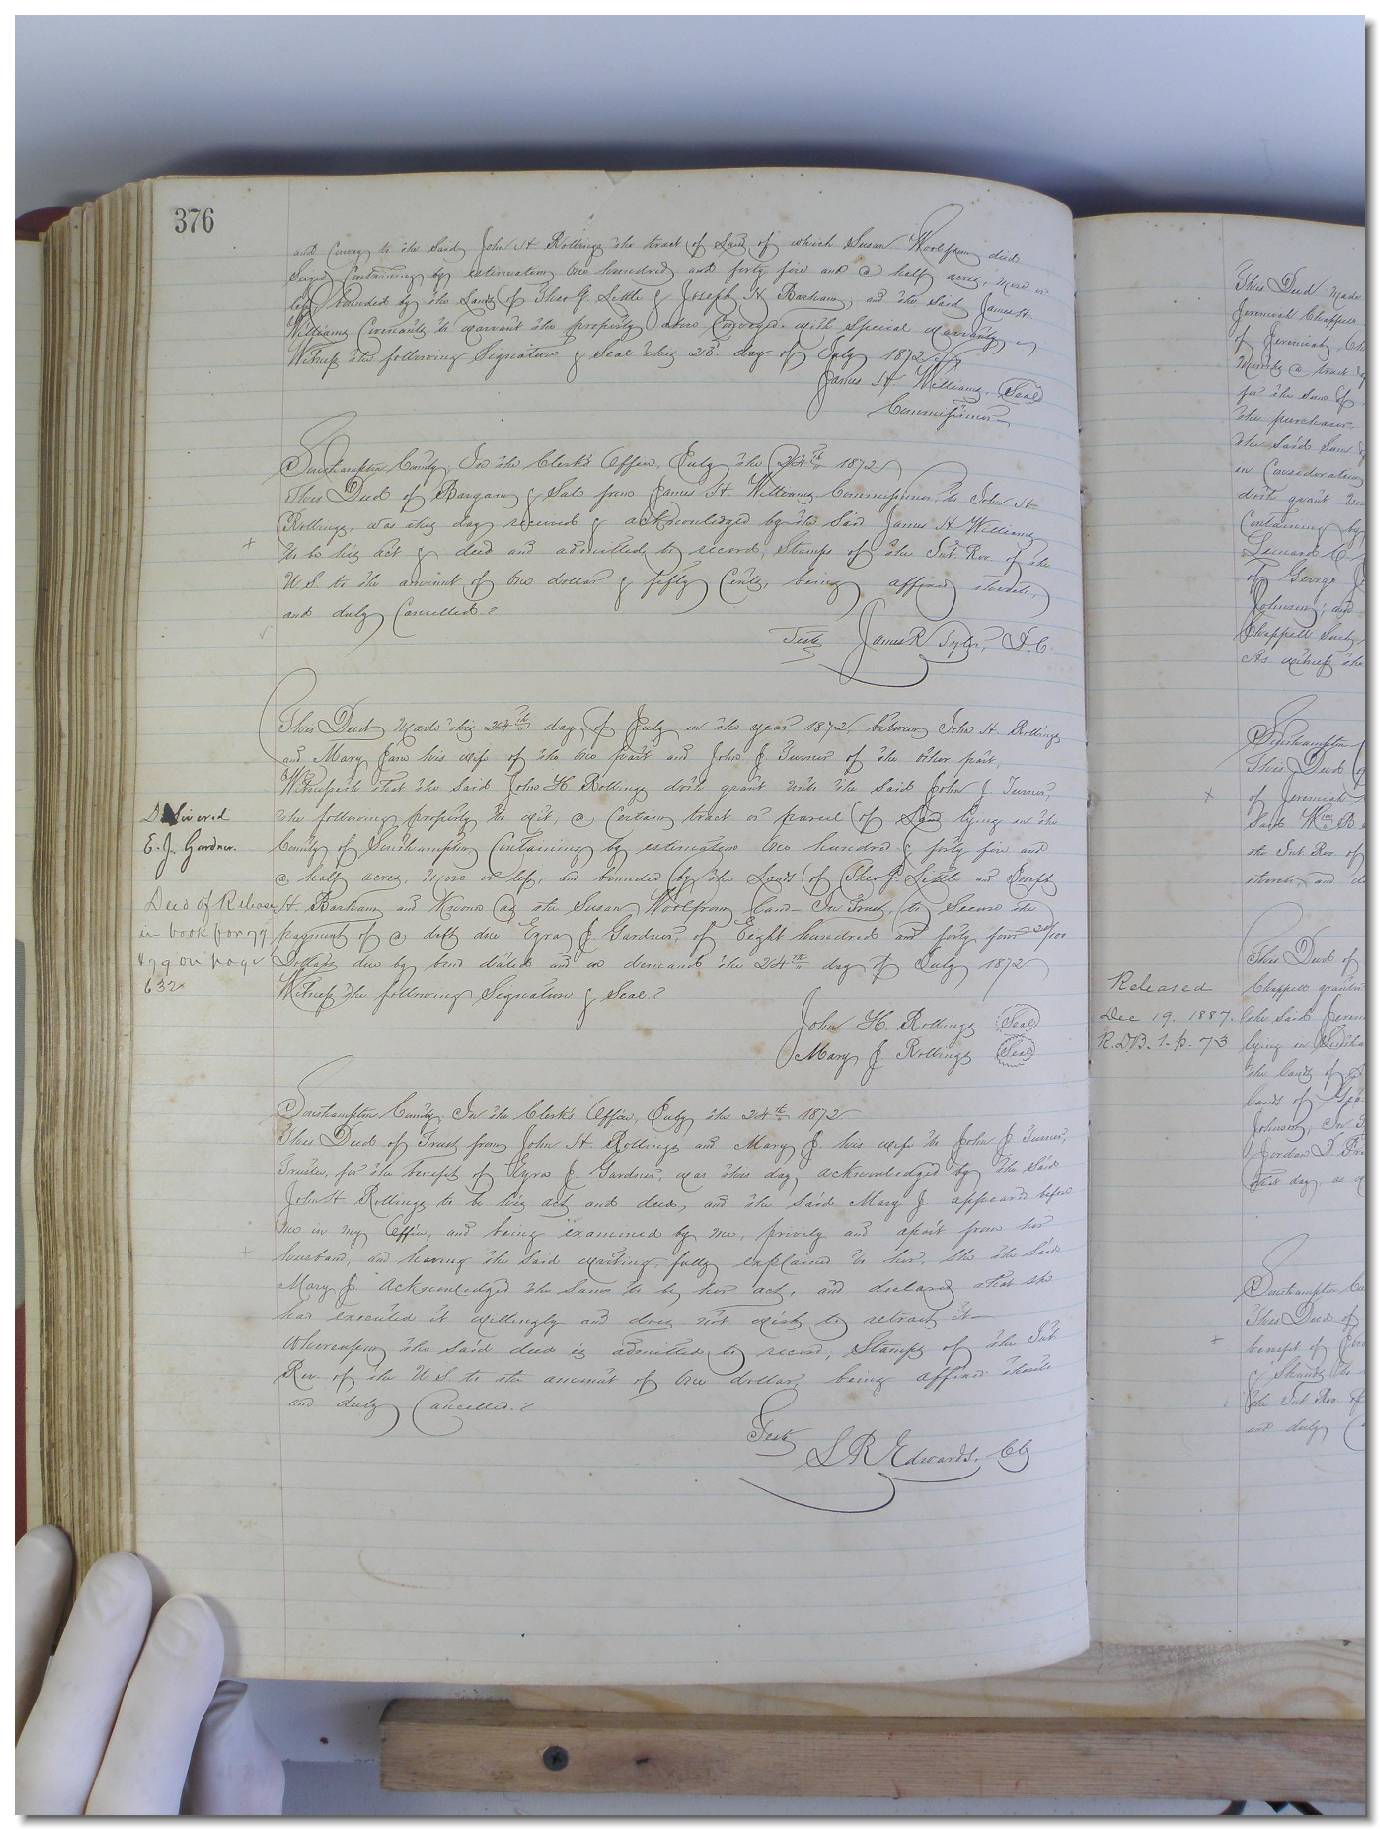 376
and Convey to the Said John H Rollings the tract of Land of which Susan Woolfrom died
Seized Containing by estimation One hundred and forty five and a half acres, more or
less, bounded by the Lands of Theo G. Little & Joseph H Barham, and the said James H.
Williams Covenants to warrant the property above Conveyed with Special warranty
Witness the following Signature & Seal this 23d day of July 1872
James H Williams Seal
Commissioner
Southampton County, In the Clerk's Office, July the 24th 1872
This Deed of Bargain & Sale from James H. Williams Commissioner, to John H
Rollings, was this day received & acknowledged by the said James H Williams
to be his act & deed and admitted to record, Stamps of the Int. Rev. of the
U S. to the amount of One dollar & fifty Cents, being affixed thereto,
and duly Cancelled.
Teste James R Tyler, D.C.
This Deed Made this 24th day of July in the year 1872, between John H Rollings
and Mary Jane his wife of the one part and John J. Turner of the other part,
Witnesseth that the said John H Rollings doth grant unto the said John J Turner,
the following property to wit, a Certain tract or parcel of Land lying in the
County of Southampton Containing by estimation One hundred & forty five and
a half acres, more or less, and bounded by the Lands of Theo G. Little and Joseph
H. Barham and Known as the Susan Woolfrom Land - In Trust, to Secure the
payment of a debt due Ezra J. Gardner, of Eight hundred and forty four /100
Dollars due by bond dated and on demand the 24th day of July 1872
Witness the following Signatures & Seals
John H. Rollings Seal
Mary J Rollings Seal
Delivered
E. J. Gardner.
Deed of Release
in book for 79
on page
632
Southampton County, In the Clerk's Office, July the 24th 1872
This Deed of Trust from John H. Rollings and Mary J. his wife to John J Turner,
Trustee, for the benefit of Ezra J. Gardner, was this day acknowledged by the said
John H Rollings to be his act and deed, and the said Mary J appeared before
me in my Office, and being examined by me, privily and apart from her
husband, and having the said writing fully explained to her, She the said
Mary J acknowledged the same to be her act, and declared that she
had executed it willingly and does not wish to retract it
Whereupon the said deed is admitted to record, Stamps of the Int
Rev. of the U S. to the amount of One dollar, being affixed thereto
and duly Cancelled.
Teste
L R Edwards, Clk
This Deed made
Jeremiah Chappell
of Jeremiah
for the sum of
the purchaser
the said sum
in Consideration
doth grant
Containing by
of George
Johnson, and
Chappell
As witness the
Southampton
This Deed
of Jeremiah
Said Wm B
the Int. Rev of
thereto and
This Deed of
Chappell
the said
lying in
the County of
Lands of
Johnson, In
Jordan
that day, as
Released
Dec 19. 1887.
R.D.B. 1-p. 73
Southampton
This Deed of
benefit of
the Int Rev of
and duly